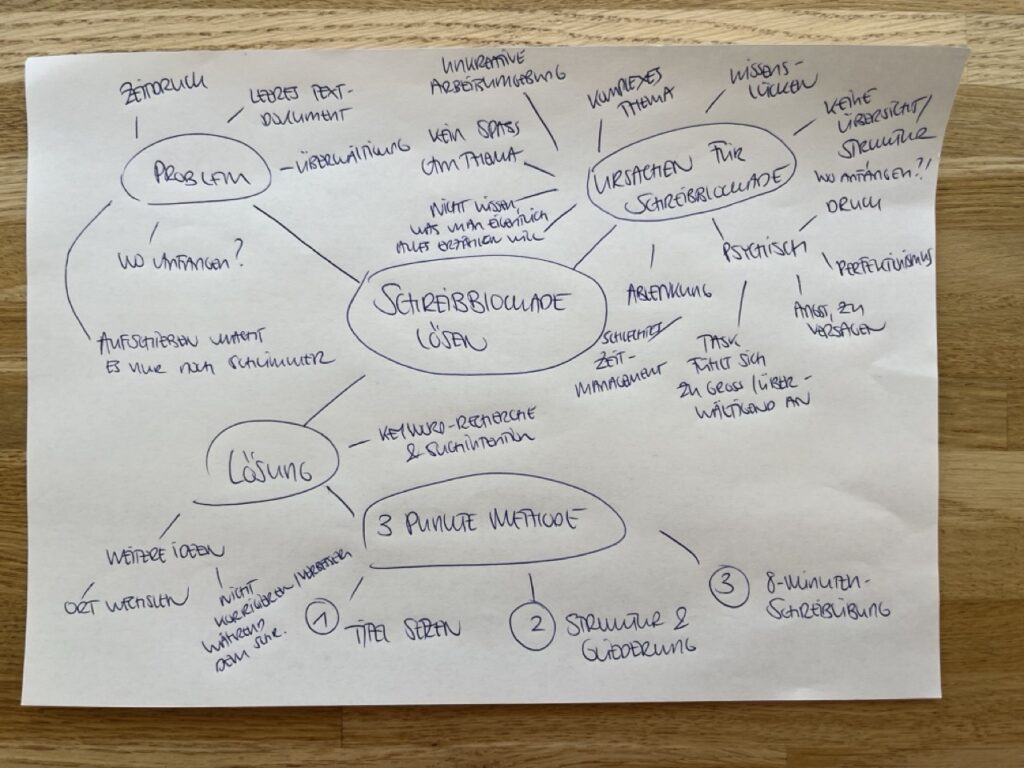 ZEITDRUCK
LEERES TEXT-
DOKUMENT
PROBLEM
ÜBERWÄLTIGUNG
WO ANFANGEN?
AUFSCHIEBEN MACHT
ES NUR NOCH SCHLIMMER
UNKREATIVE
ARBEITSUMGEBUNG
KOMPLEXES
THEMA
WISSENS-
LÜCKEN
KEINE
ÜBERSICHT/
STRUKTUR
WO ANFANGEN?!
KEIN SPASS
AM THEMA
URSACHEN FÜR
SCHREIBBLOCKADE
NICHT WISSEN,
WAS MAN EIGENTLICH
ALLES ERZÄHLEN WILL
DRUCK
PSYCHISCH
PERFEKTIONISMUS
ANGST, ZU
VERSAGEN
TASK
FÜHLT SICH
ZU GROSS/ÜBER-
WÄLTIGEND AN
ABLENKUNG
SCHLECHTES
ZEIT-
MANAGEMENT
SCHREIBBLOCKADE
LÖSEN
LÖSUNG
KEYWORD-RECHERCHE
& SUCHINTENTION
3 PUNKTE METHODE
1 TITEL SETZEN
2 STRUKTUR &
GLIEDERUNG
3 8-MINUTEN-
SCHREIBÜBUNG
WEITERE IDEEN
ORT WECHSELN
NICHT
KORRIGIEREN/VERBESSERN
WÄHREND
DEM SCHR.